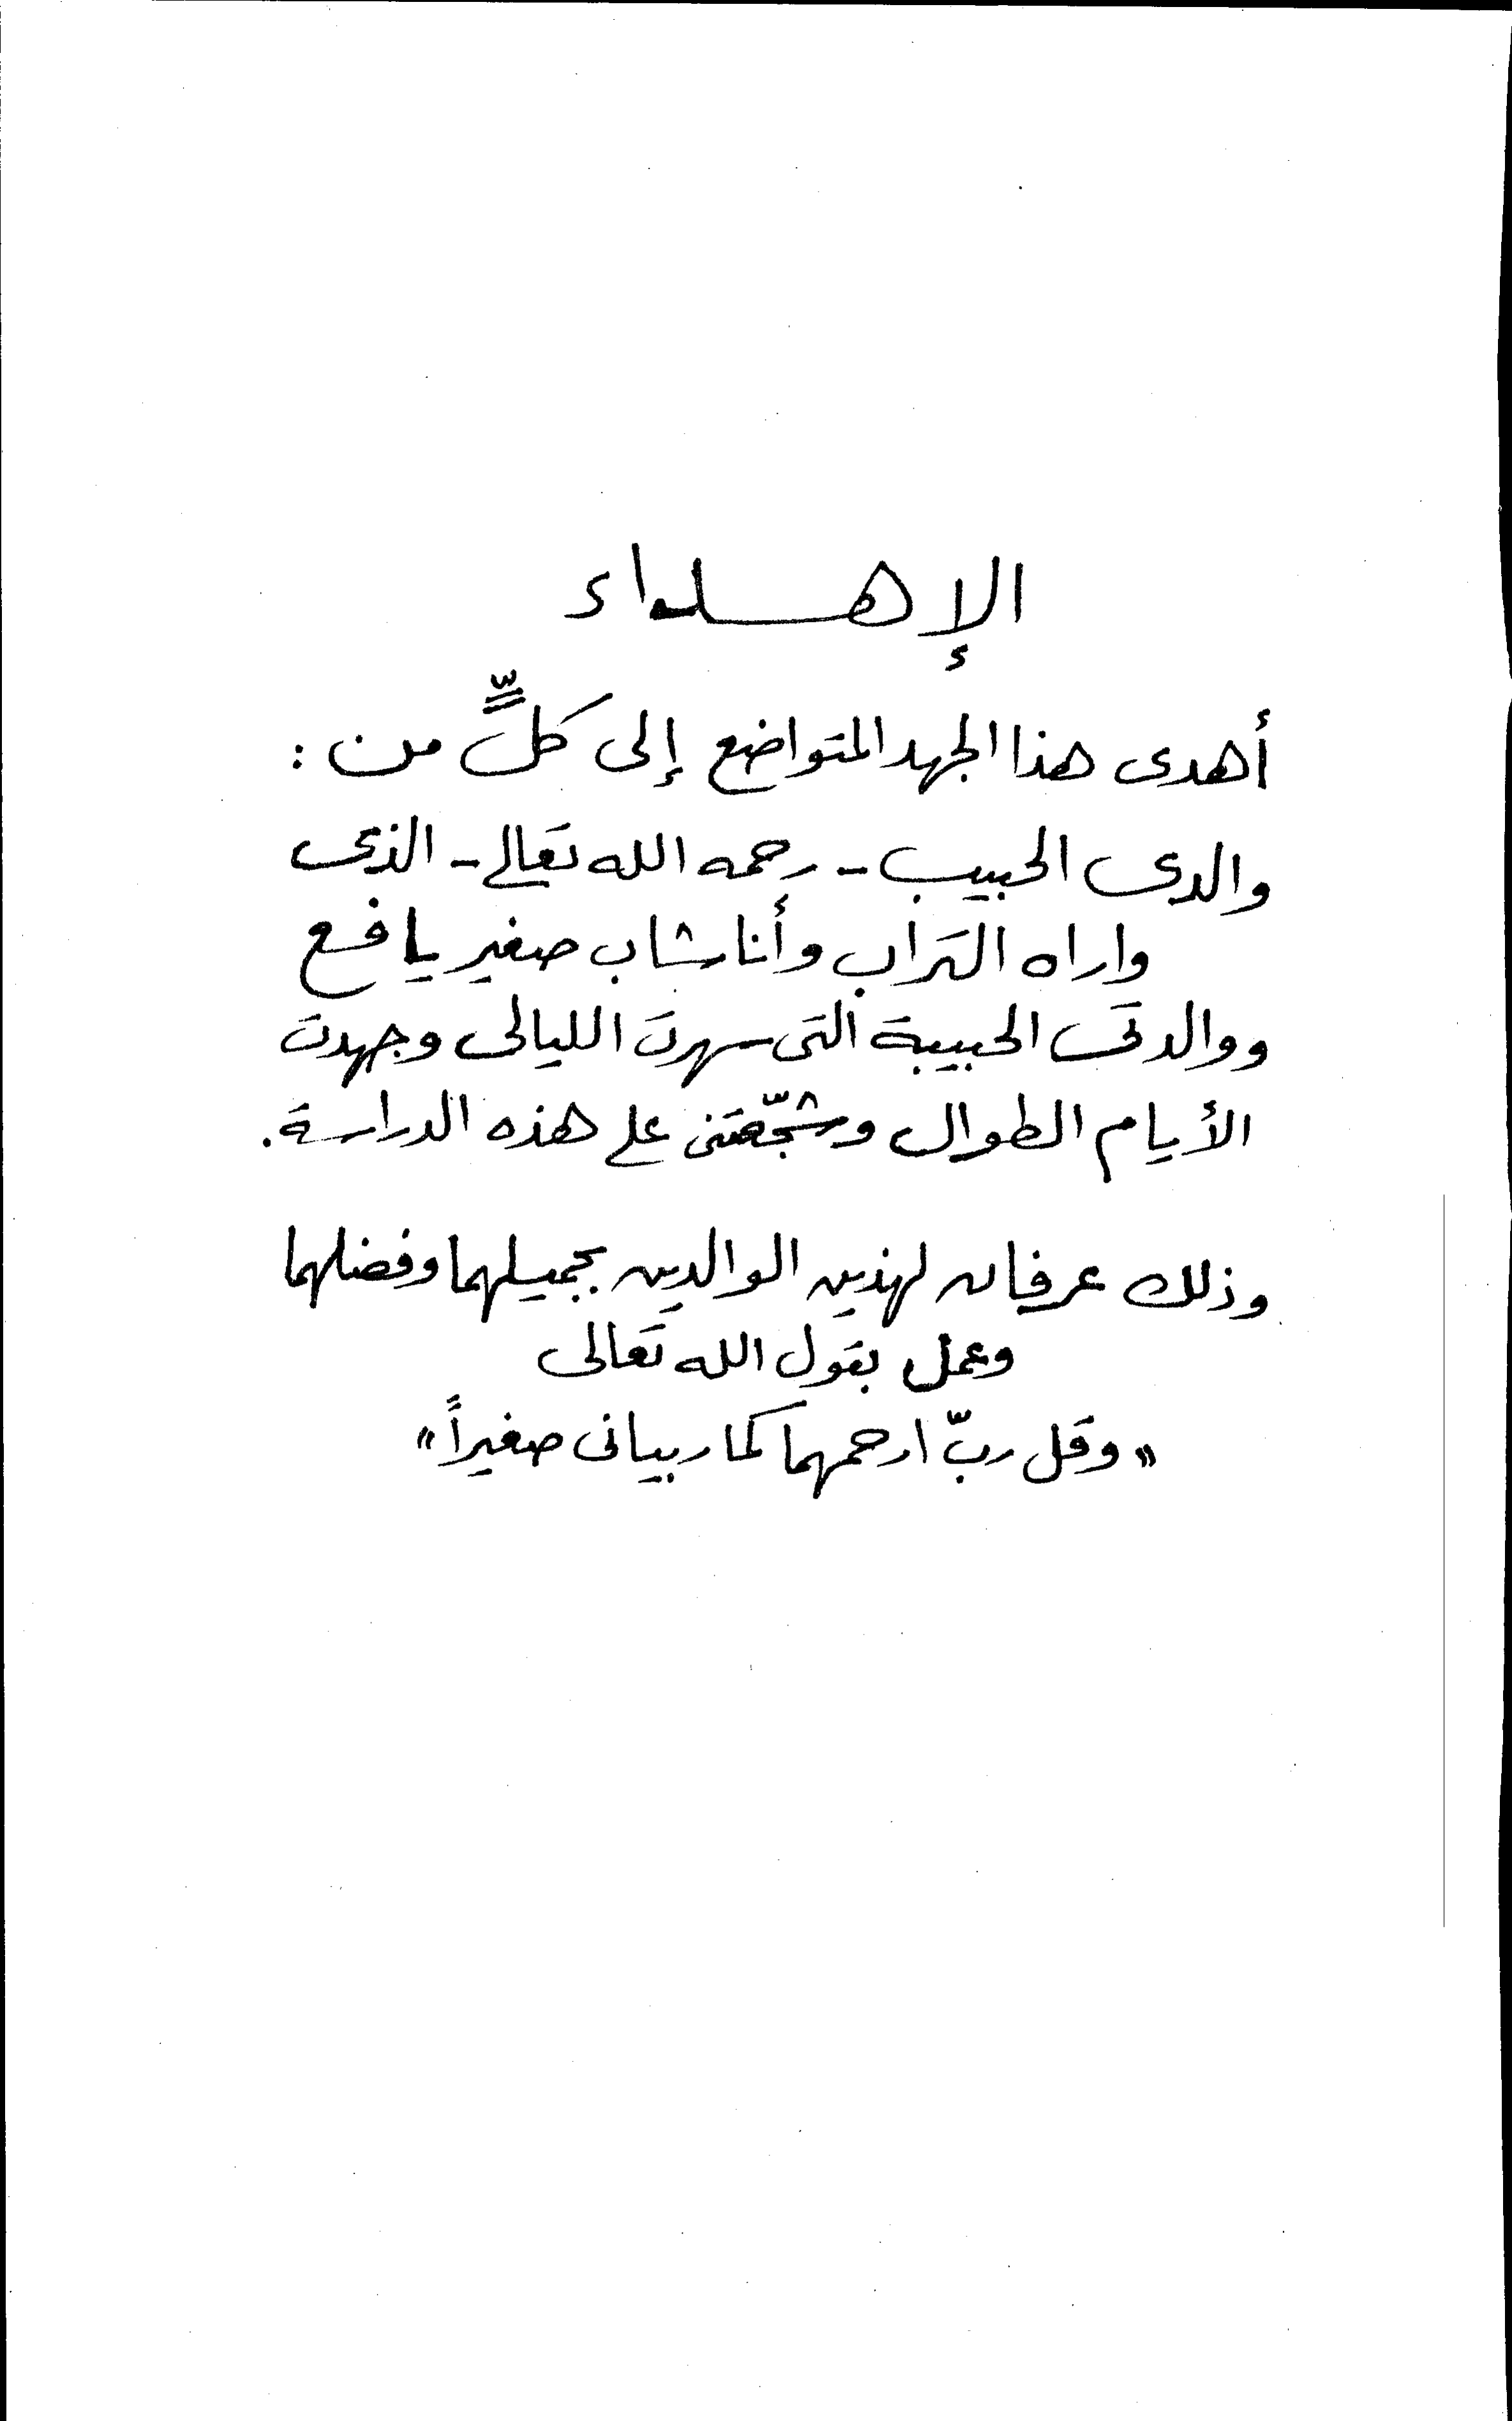 الإهداء
أهدى هذا الجهد المتواضع إلى كلٍّ من :
والدى الحبيب - رحمه الله تعالى - الذى
واراه التراب وأنا شاب صغير يافع
ووالدتى الحبيبة التى سهرت الليالى وجهدت
الأيام الطوال وشجّعتنى على هذه الدراسة .
وذلك عرفان لهذين الوالدين بجميلهما وفضلهما
وعمل بقول الله تعالى
« وقل ربّ ارحمهما كما ربيانى صغيراً »